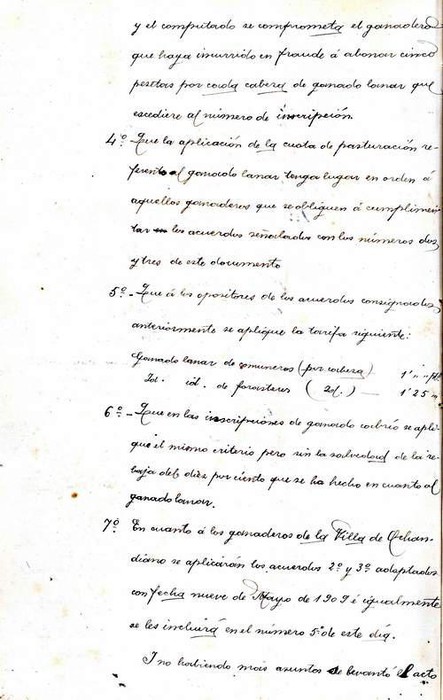 y el computado se comprometa el ganadero
que haya incurrido en fraude á abonar cinco
pesetas por cada cabeza de ganado lanar que
escediere al número de inscripción.
4º Que la aplicación de la cuota de pasturación re-
ferente al ganado lanar tenga lugar en orden á
aquellos ganaderos que se obliguen á cumplimen
tar los acuerdos señalados con los números dos
y tres de este documento
5º - Que á los opositores de los acuerdos consignados
anteriormente se aplique la tarifa siguiente:
Ganado lanar de comuneros (por cabeza) 1'
Id. id. de forasteros (Id.) — 1'25
6º - Que en las inscripciones de ganado cabrío se apli-
que el mismo criterio pero sin la salvedad de la re-
baja del diez por ciento que se ha hecho en cuanto al
ganado lanar.
7º En cuanto á los ganaderos de la Villa de Ochan-
diano se aplicarán los acuerdos 2º y 3º adoptados
con fecha nueve de Mayo de 1909 é igualmente
se les incluirá en el número 5º de este día.
I no habiendo mais asuntos se levantó el acto